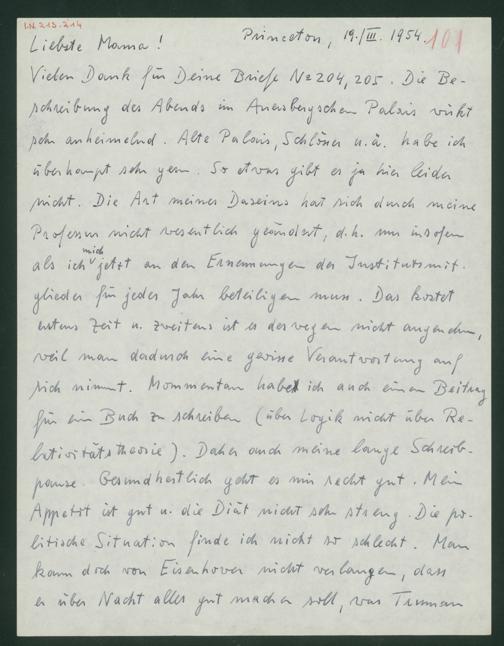 I.N. 213.214
Princeton, 19./III. 1954. 101
Liebste Mama!
Vielen Dank für Deine Briefe No 204, 205. Die Be-
schreibung des Abends im Auersbergschen Palais wirkt
sehr anheimelnd. Alte Palais, Schlösser u.ä. habe ich
überhaupt sehr gern. So etwas gibt es ja hier leider
nicht. Die Art meines Daseins hat sich durch meine
Professur nicht wesentlich geändert, d.h. nur insofern
als ich mich jetzt an den Ernennungen der Institutsmit-
glieder für jedes Jahr beteiligen muss. Das kostet
erstens Zeit u. zweitens ist es deswegen nicht angenehm,
weil man dadurch eine gewisse Verantwortung auf
sich nimmt. Mommentan habe ich auch einen Beitrag
für ein Buch zu schreiben (über Logik nicht über Re-
lativitätstheorie). Daher auch meine lange Schreib-
pause. Gesundheitlich geht es mir recht gut. Mein
Appetit ist gut u. die Diät nicht sehr streng. Die po-
litische Situation finde ich nicht so schlecht. Man
kann doch von Eisenhover nicht verlangen, dass
er über Nacht alles gut machen soll, was Truman